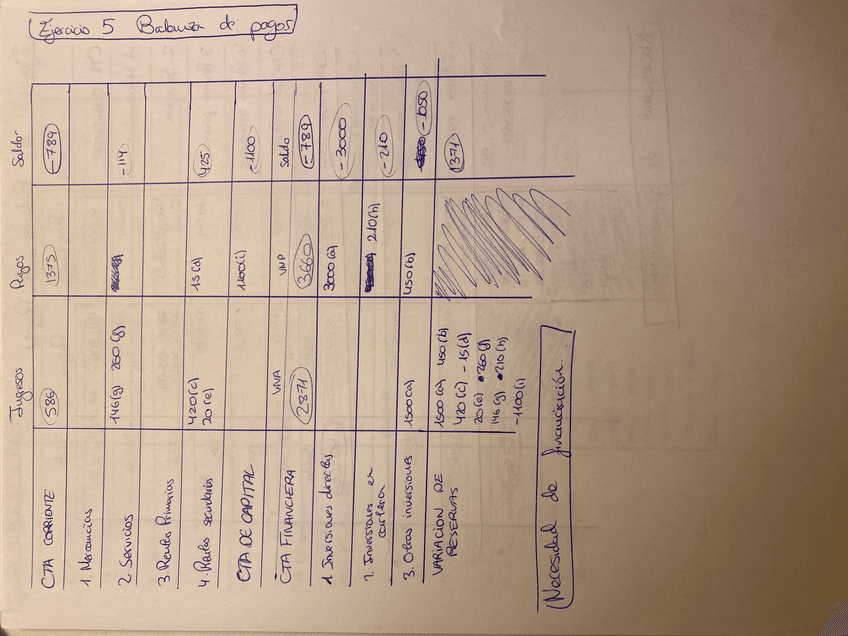 Ejercicio 5 Balanza de pagos
Ingresos Pagos Saldo
CTA CORRIENTE 586 1375 -789
1. Mercancías
2. Servicios 146(g) 260(f) -114
3. Rentas Primarias
4. Rentas secundarias 420(c) 15(d) 425
20(e)
CTA DE CAPITAL 1100(i) -1100
CTA FINANCIERA VNA VNP Saldo
2871 3660 -789
1. Inversiones directas 3000(a) -3000
2. Inversiones en 210(h) -210
cartera
3. Otras inversiones 1500(a) 450(b) -1050
VARIACIÓN DE 1500(a) 450(b) 1371
RESERVAS 420(c) -15(d)
20(e) 260(f)
146(g) 210(h)
-1100(i)
Necesidad de financiación.